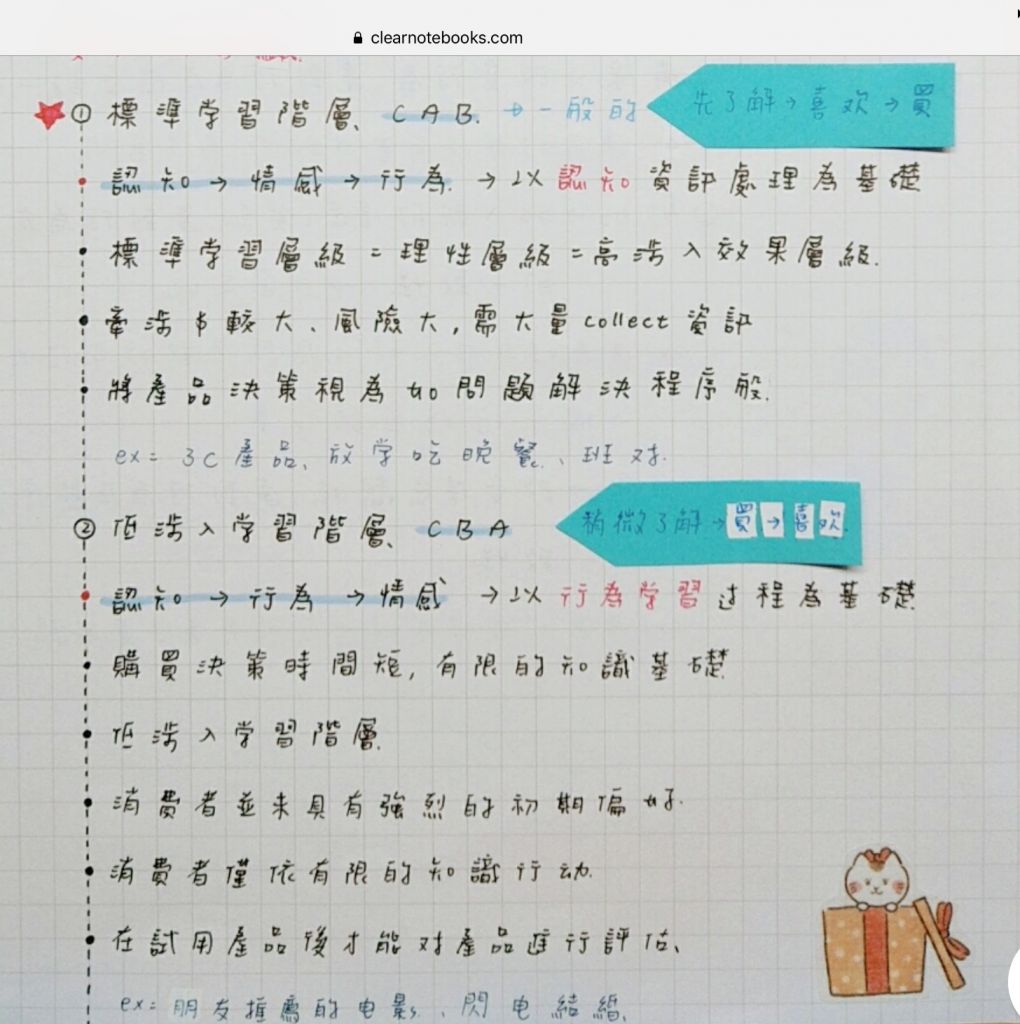 clearnotebooks.com
① 標準学習階層、CAB. → 一般的 先了解→喜欢→買
認知→情感→行為. → 以認知資訊處理為基礎
標準学習層級=理性層級=高涉入效果層級.
牽涉$較大、風險大,需大量collect資訊
將產品決策視為如問題解決程序般.
ex= 3C產品、放学吃晚餐.、班对.
② 低涉入学習階層、CBA 稍微了解→買→喜欢.
認知→行為→情感 → 以行為学習过程為基礎
購買決策時間短,有限的知識基礎
低涉入学習階層.
消費者並未具有強烈的初期偏好.
消費者僅依有限的知識行动.
在試用產品後才能对產品進行評估、
ex= 朋友推薦的电影.、閃电結婚.